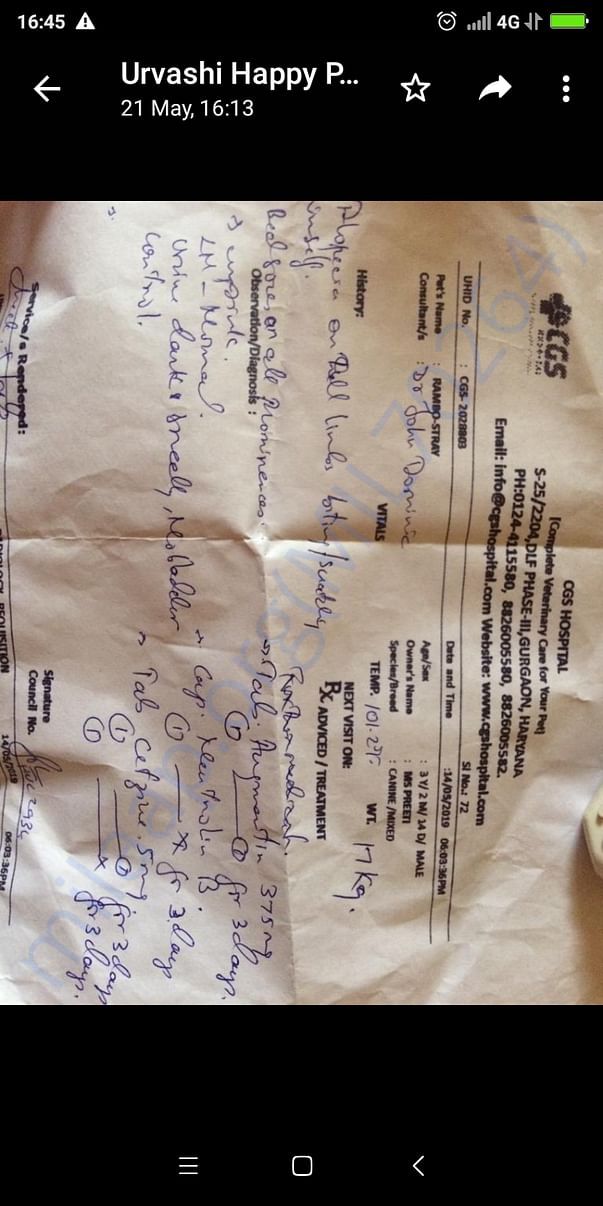 16:45
4G
Urvashi Happy P...
21 May, 16:13
CGS
CGS HOSPITAL
[Complete Veterinary Care for Your Pet]
S-25/2204,DLF PHASE-III,GURGAON, HARYANA
PH:0124-4115580, 8826005580, 8826005582.
Email: info@cgshospital.com Website: www.cgshospital.com
Sl No.: 72
UHID No. : CGS- 2028803
Date and Time :14/05/2019 06:03:36PM
Pet's Name : RAMBO-STRAY
Age/Sex : 3 Y/ 2 M/ 14 D/ MALE
Consultant/s : Dr John Dominic
Owner's Name : MS PREETI
Species/Breed : CANINE /MIXED
VITALS
TEMP. 101.2°F
WT. 17 Kg.
History:
NEXT VISIT ON:
Rx ADVICED / TREATMENT
Alopecia on limbs biting/
himself.
Bed sores on all prominences.
Observation/Diagnosis :
LN - Normal.
Urine dark & smelly, No bladder
control.
→ Tab. Augmentin 375mg
① ——— ① for 3 days.
→ Cap. B.
① ——— x for 3 days
→ Tab Cetzine 5mg
① ——— ① for 3 days
① ——— x for 3 days.
Service/s Rendered:
Signature
Council No.
REQUISITION
14/05/2019 06:03:36PM
milaap.org